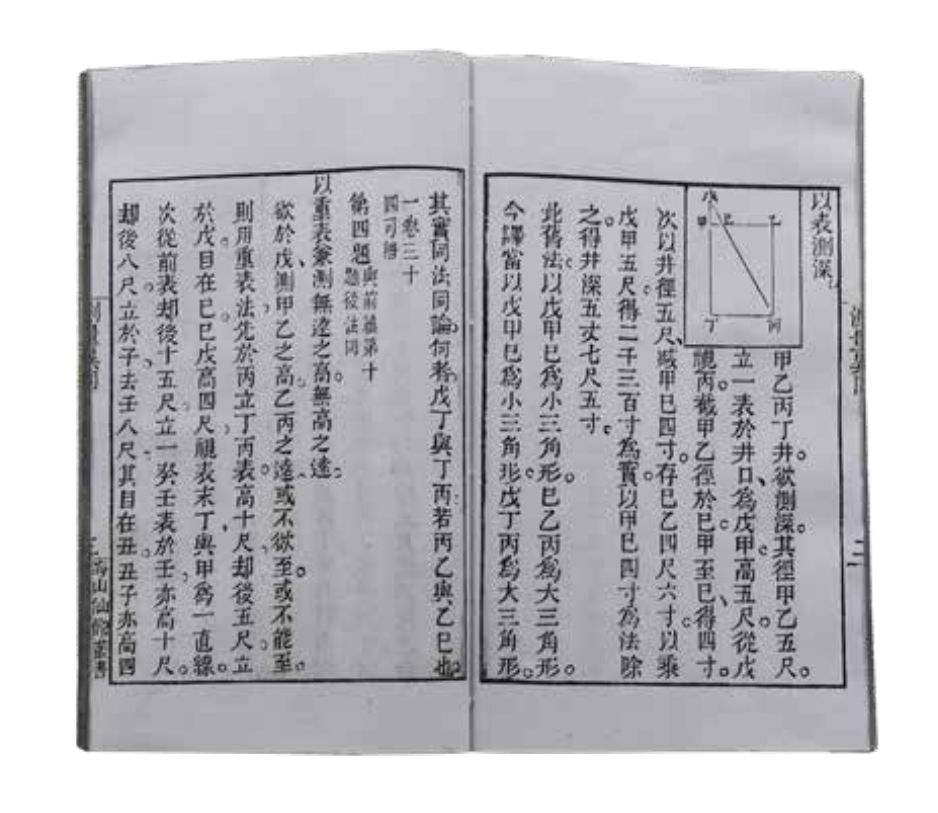 以表測深。
戊
甲
己
乙
丁
丙
甲乙丙丁井。欲測深。其徑甲乙五尺。
立一表於井口、爲戊甲。高五尺。從戊
視丙。截甲乙徑於己。甲至己、得四寸。
次以井徑五尺、減甲己四寸。存己乙四尺六寸。以乘
戊甲五尺。得二千三百寸爲實。以甲己四寸爲法除
之。得井深五丈七尺五寸。
此舊法。以戊甲己爲小三角形。己乙丙爲大三角形。
今譯當以戊甲己爲小三角形。戊丁丙爲大三角形。
其實同法同論何者。戊丁與丁丙。若丙乙與乙己也。
一卷三十
四可推
第四題與前篇第十
題後法同
以重表兼測無遠之高。無高之遠。
欲於戊、測甲乙之高。乙丙之遠。或不欲至。或不能至。
則用重表法。先於丙立丁丙表。高十尺。却後五尺。立
於戊。目在己。己戊高四尺。視表末丁、與甲爲一直線。
次從前表却後十五尺。立一癸壬表於壬。亦高十尺。
却後八尺。立於子。去壬八尺。其目在丑。丑子亦高四
海山仙館叢書